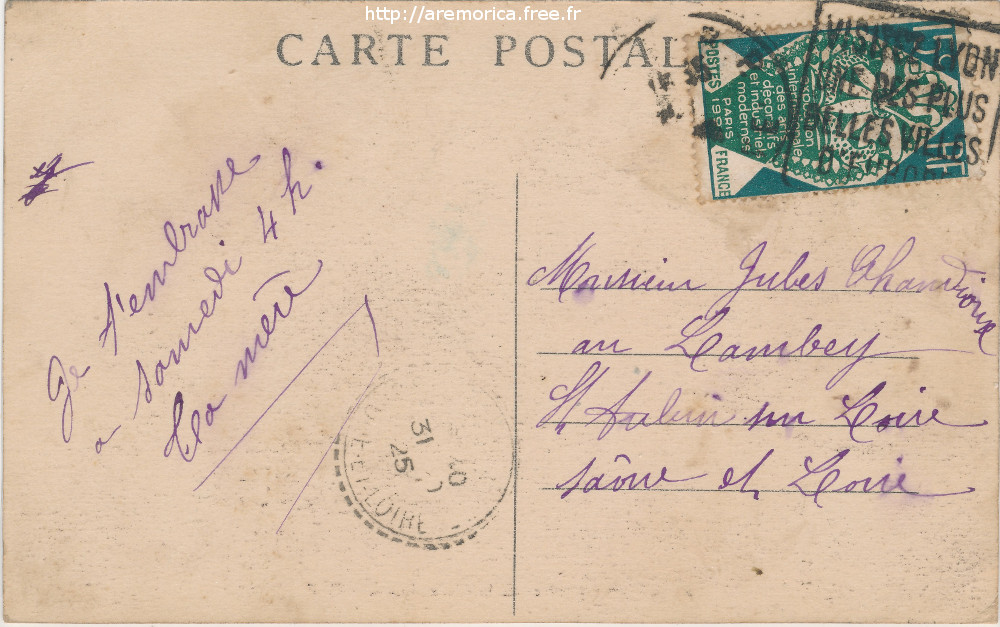 http://aremorica.free.fr
CARTE POSTALE
VISITEZ LYON
UNE DES PLUS
BELLES VILLES
D'EUROPE
exposition
internationale
des arts
décoratifs
et industriels
modernes
PARIS
POSTES 1925
FRANCE
Je t'embrasse
a samedi 4 h.
Ta mère
Monsieur Jules
au Lambey
St Aubin sur Loire
Saône et Loire
31
25
ET-LOIRE